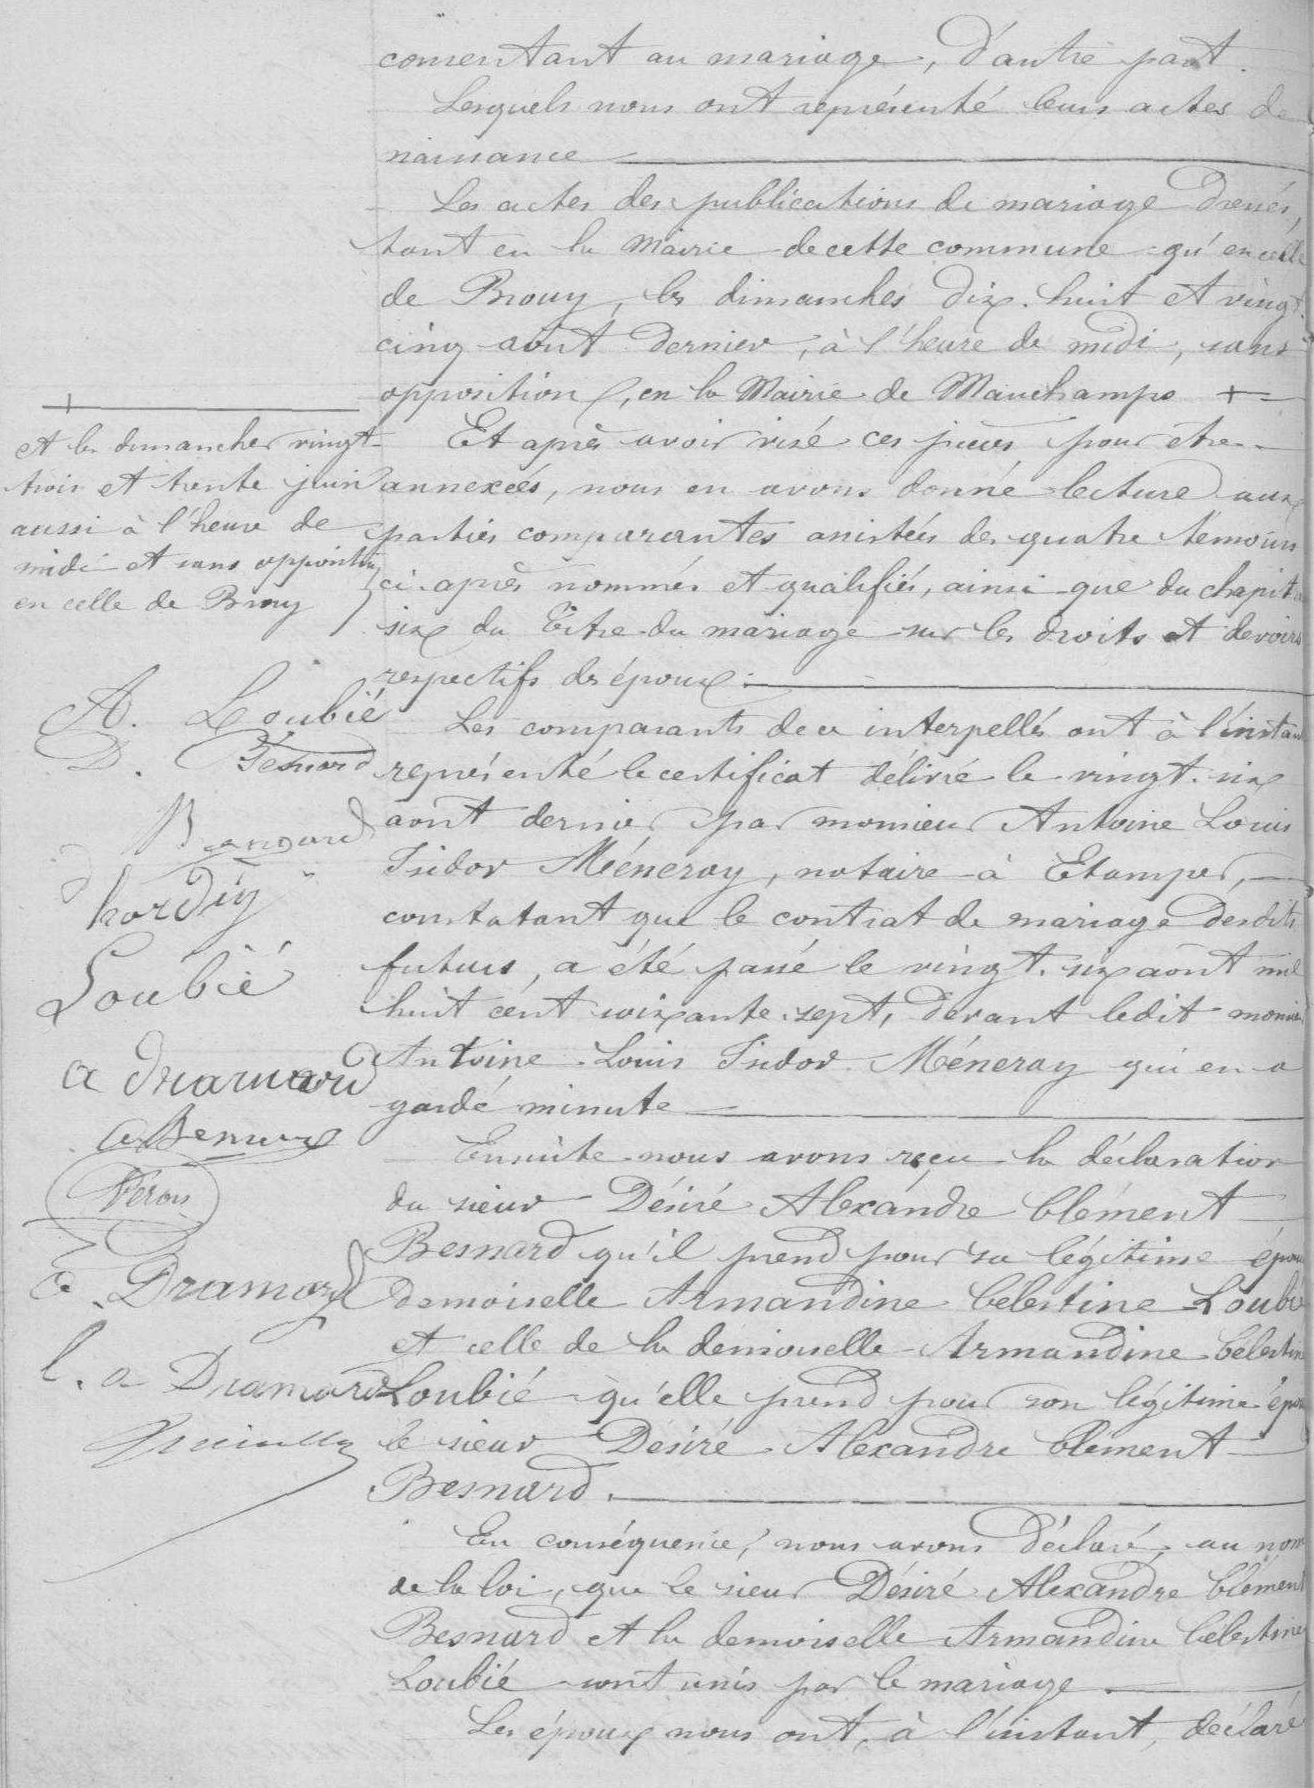 consentant au mariage, d'autre part.
Lesquels nous ont représenté leurs actes de
naissance
Les actes des publications de mariage dressés,
tant en la Mairie de cette commune qu'en celle
de Brouy, les dimanches dix-huit et vingt-
cinq août dernier, à l'heure de midi, sans
opposition, en la Mairie de Mauchamps +
Et après avoir visé ces pièces pour être
annexées, nous en avons donné lecture aux
parties comparantes assistées des quatre témoins
ci-après nommés et qualifiés, ainsi que du chapitre
six du titre du mariage sur les droits et devoirs
respectifs des époux.
Les comparants de ce interpellés ont à l'instant
représenté le certificat délivré le vingt-six
août dernier par monsieur Antoine Louis
Isidor Méneray, notaire à Etampes,
constatant que le contrat de mariage desdits
futurs, a été passé le vingt-six août mil
huit cent soixante-sept, devant ledit monsieur
Antoine Louis Isidor Méneray qui en a
gardé minute
Ensuite nous avons reçu la déclaration
du sieur Désiré Alexandre Clément
Besnard qu'il prend pour sa légitime épouse
demoiselle Armandine Célestine Loubié
et celle de la demoiselle Armandine Célestine
Loubié qu'elle prend pour son légitime époux
le sieur Désiré Alexandre Clément
Besnard.
En conséquence, nous avons déclaré, au nom
de la loi, que le sieur Désiré Alexandre Clément
Besnard et la demoiselle Armandine Célestine
Loubié sont unis par le mariage.
Les époux nous ont, à l'instant, déclaré
+
et les dimanches vingt-
trois et trente juin
aussi à l'heure de
midi et sans opposition
en celle de Brouy
A. Loubié
D. Besnard
Besnard
hardy
Loubié
a Dramard
Besnard
Véron
Dramard
l. a Dramard